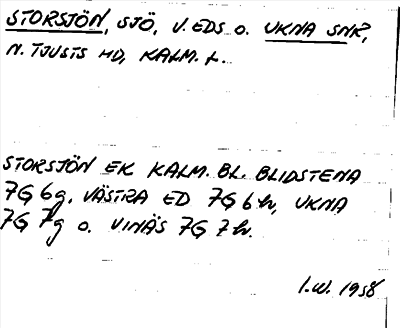 STORSJÖN, SJÖ, V. EDS O. UKNA SNR,
N. TJUSTS HD, KALM. L.
STORSJÖN EK KALM. BL. BLIDSTENA
7G 6g, VÄSTRA ED 7G 6h, UKNA
7G 7g O. VINÄS 7G 7h.
I.W. 1958